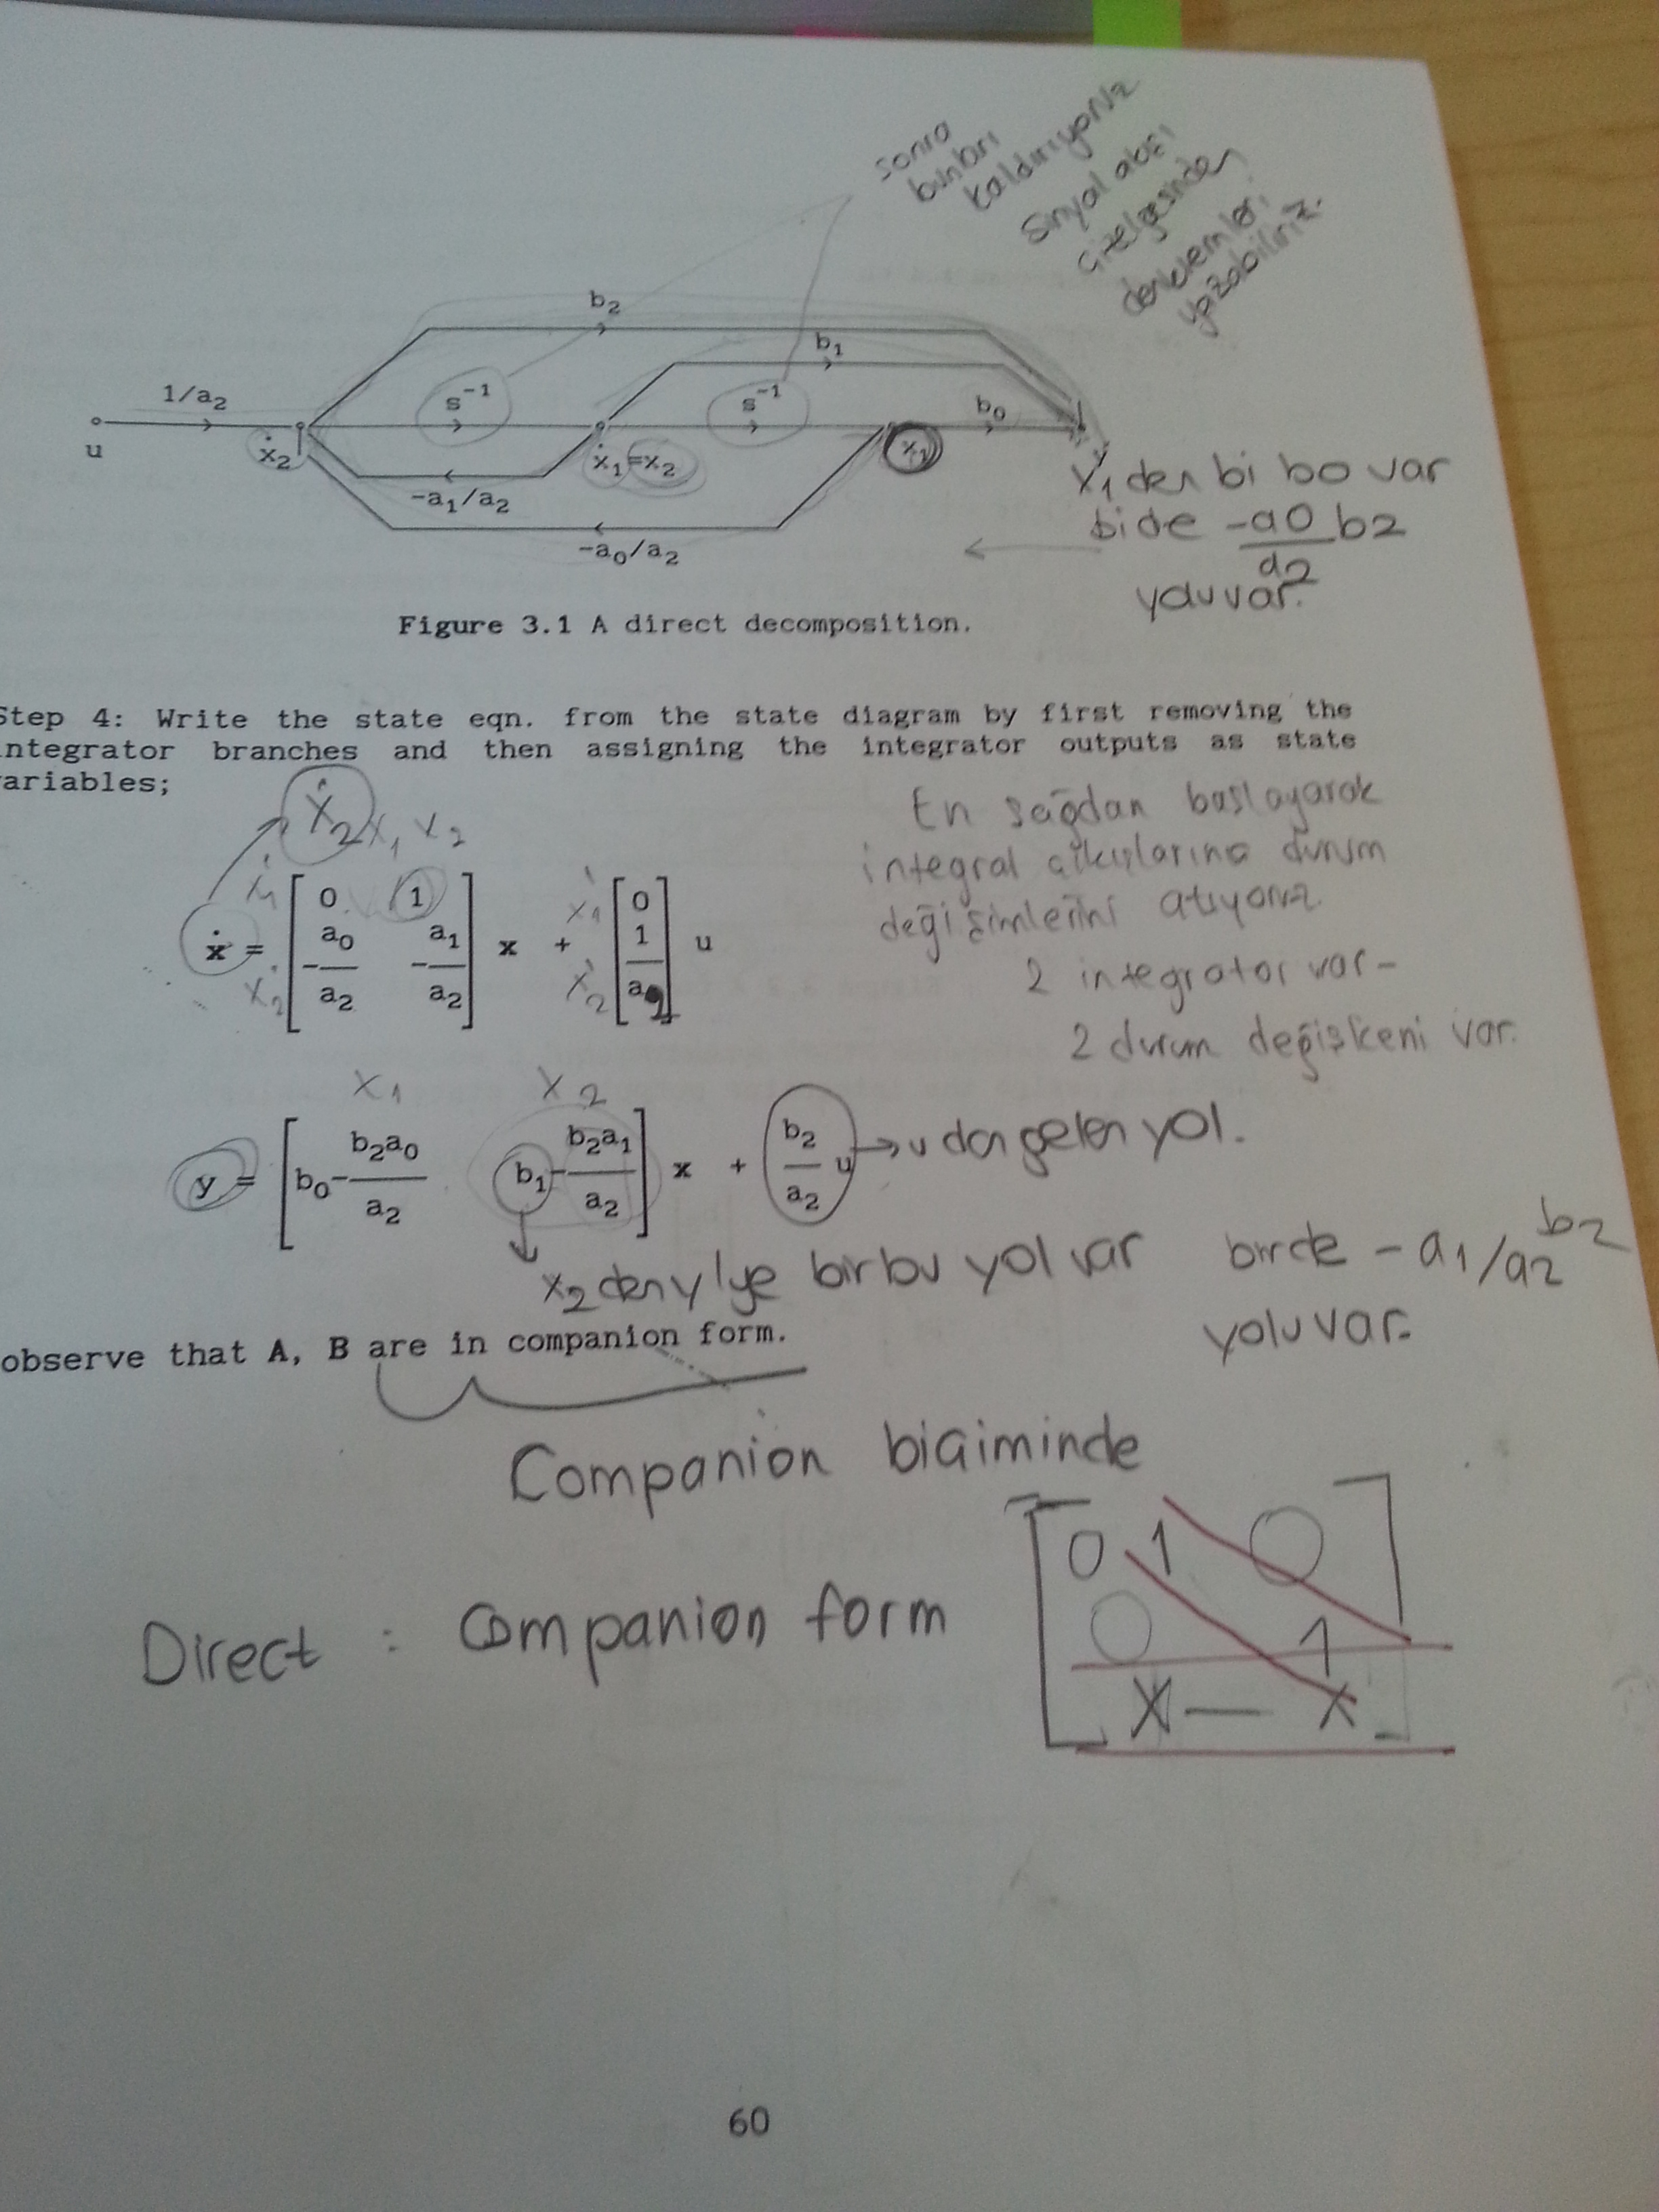 sonra
bunları
kaldırıyoruz
Sinyal akış
çizelgesinden
denklemleri
yazabiliriz.
b₂
b₁
1/a₂
s⁻¹
s⁻¹
b₀
u
ẋ₂
ẋ₁=x₂
x₁
y
-a₁/a₂
-a₀/a₂
X₁ den bi bo var
bide -a0/a2 b2
yolu var.
Figure 3.1 A direct decomposition.
Step 4: Write the state eqn. from the state diagram by first removing the
integrator branches and then assigning the integrator outputs as state
variables;
Ẋ₂ X₁ X₂
En sağdan başlayarak
integral çıkışlarına durum
değişimlerini atıyoruz.
2 integrator var-
2 durum değişkeni var.
ẋ₁ [ 0 1 ] ẋ₁ [ 0 ]
ẋ = [ -a₀/a₂ -a₁/a₂ ] x + [ 1/a₂ ] u
ẋ₂ ẋ₂
X₁ X₂
y = [ b₀-b₂a₀/a₂ b₁-b₂a₁/a₂ ] x + b₂/a₂ u → u dan gelen yol.
x₂ den y'ye bir bu yol var birde -a₁/a₂ b₂
yolu var.
observe that A, B are in companion form.
Companion biçiminde
Direct : Companion form
0 1 0
0 1
X — X
60